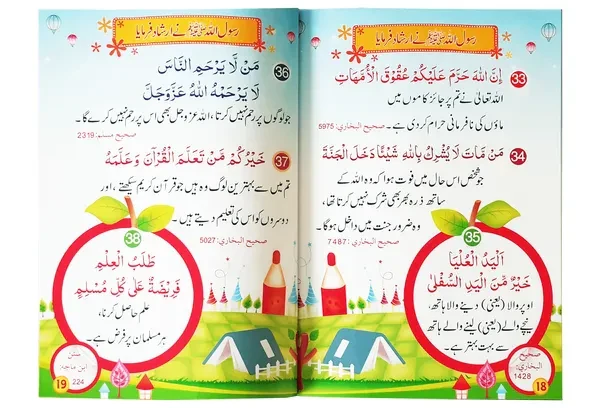 رسول اللہ ﷺ نے ارشاد فرمایا
33
إِنَّ اللهَ حَرَّمَ عَلَيْكُمْ عُقُوقَ الْأُمَّهَاتِ
اللہ تعالیٰ نے تم پر جائز کاموں میں
ماؤں کی نافرمانی حرام کر دی ہے۔
صحيح البخاري: 5975
34
مَن مَاتَ لَا يُشْرِكُ بِاللهِ شَيْئًا دَخَلَ الْجَنَّةَ
جو شخص اس حال میں فوت ہوا کہ وہ اللہ کے
ساتھ ذرہ بھر بھی شرک نہیں کرتا تھا،
وہ ضرور جنت میں داخل ہوگا۔
صحيح البخاري: 7487
35
اَلْيَدُ الْعُلْيَا
خَيْرٌ مِّنَ الْيَدِ السُّفْلَى
اوپر والا (یعنی) دینے والا ہاتھ،
نیچے والے (یعنی) لینے والے ہاتھ
سے بہت بہتر ہے۔
صحيح
البخاري:
1428
18
رسول اللہ ﷺ نے ارشاد فرمایا
36
مَنْ لَا يَرْحَمِ النَّاسَ
لَا يَرْحَمْهُ اللهُ عَزَّوَجَلَّ
جو لوگوں پر رحم نہیں کرتا، اللہ عز وجل بھی اس پر رحم نہیں کرے گا۔
صحيح مسلم: 2319
37
خَيْرُكُمْ مَنْ تَعَلَّمَ الْقُرْآنَ وَعَلَّمَهُ
تم میں سے بہترین لوگ وہ ہیں جو قرآن کریم سیکھتے، اور
دوسروں کو اس کی تعلیم دیتے ہیں۔
صحيح البخاري: 5027
38
طَلَبُ الْعِلْمِ
فَرِيْضَةٌ عَلَى كُلِّ مُسْلِمٍ
علم حاصل کرنا،
ہر مسلمان پر فرض ہے۔
سنن
ابن ماجه:
224
19